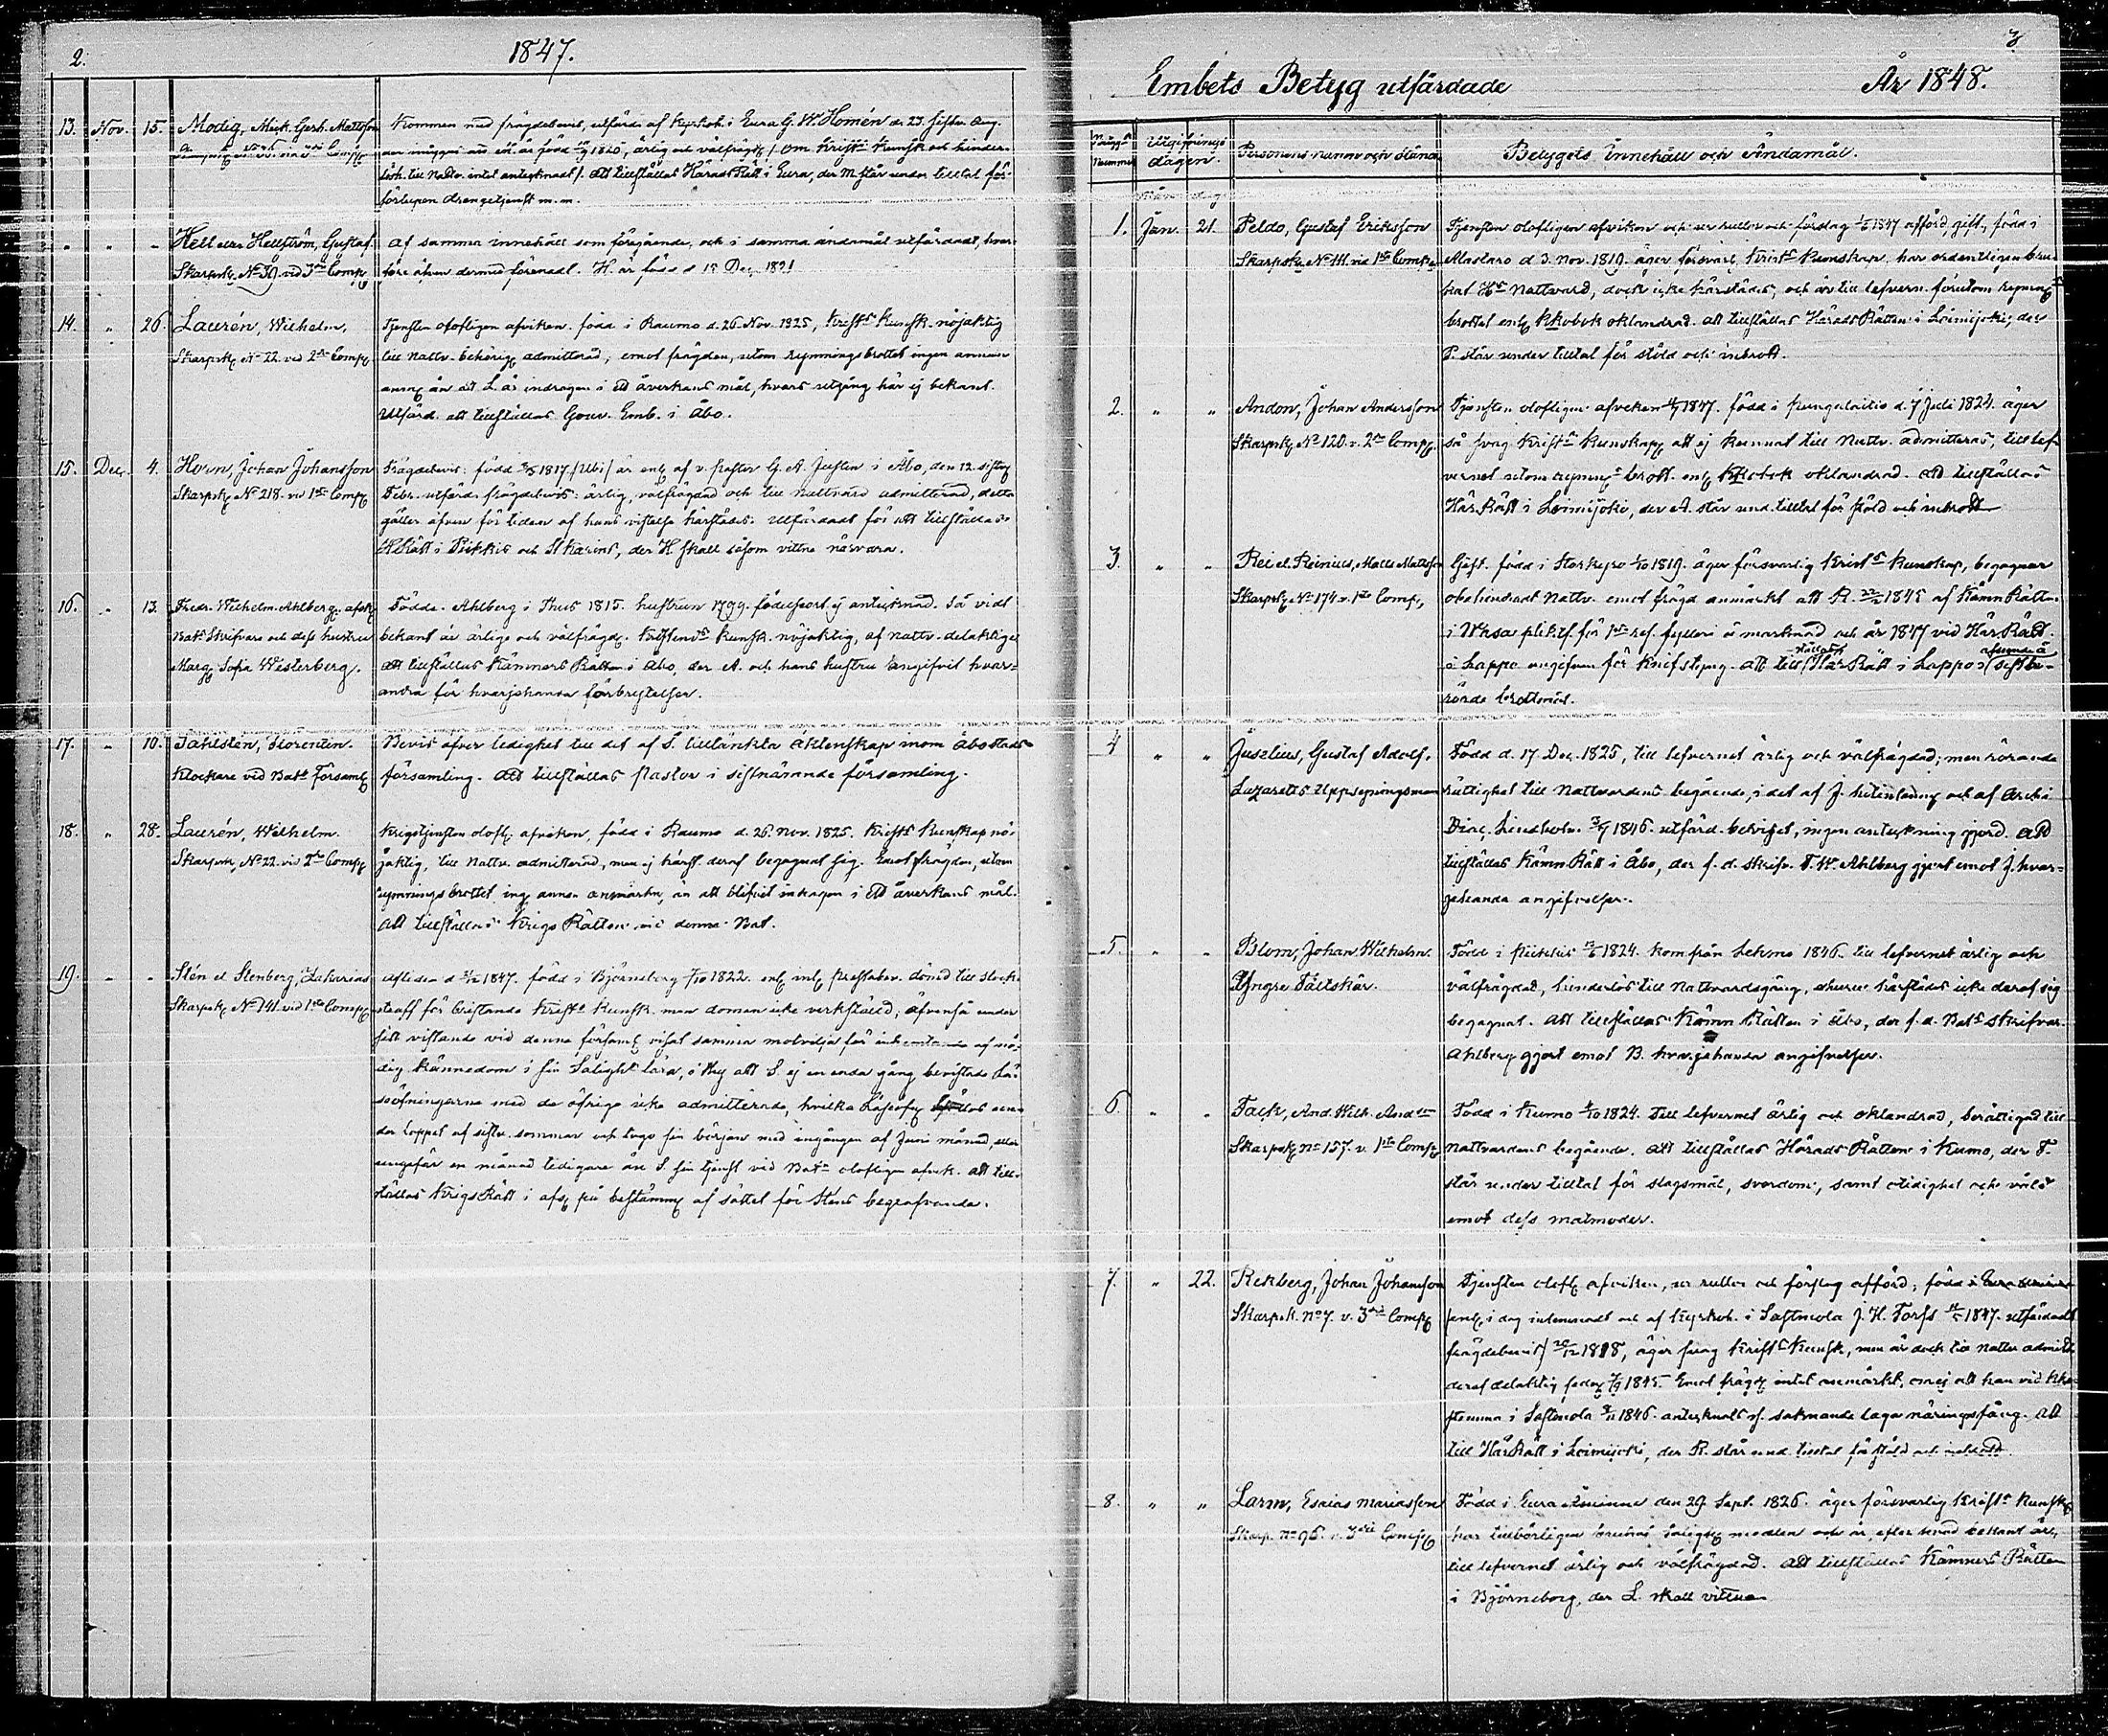 2.
1847.
13. Nov. 15. Modig, Mick. Gerh. Mattsson
Kommen med frägdebevis, utfärd. af Kyrkoh. i Eura G. W. Homén d. 23 sistv. Aug.
född 1825, ärlig och välfrägd, om Kristd. Kunsk. och hinder-
lösh. till Nattv. intet antecknadt. Att tillställas Härads Rätt i Eura, der M. står under tilltal för
förlupen drengetjenst m.m.
" " " Hell eller Hellström, Gustaf
Skarpsk. No 39 vid 3dje Comp.
Af samma innehåll som föregående, och i samma ändamål utfärdadt, hvar-
före äfven dermed förenadt. H. är född d. 18 Dec. 1821
14. " 26. Laurén, Wilhelm,
Skarpsk. No 22 vid 2dra Comp.
Tjensten olofligen afviken. född i Raumo d. 26 Nov. 1825, Kristds Kunsk. nöjaktig
till Nattv. behörig. admitterad, emot frägden, utom rymningsbrottet ingen annan
anm. än att L. är indragen i ett åverkans mål, hvars utgång här ej bekant.
Utfärd. att tillställas Gouv. Emb. i Åbo.
15. Dec. 4. Horn, Johan Johansson
Skarpsk. No 218. vid 1sta Comp.
Frägdebevis: född 1817 är enl. af v. Pastor G. A. i Åbo, den 12. sistl.
Febr. utfärd. frägdebevis: ärlig, välfrägdad och till Nattvard admitterad, detta
gäller äfven för tiden af hans vistelse härstädes. Utfärdadt för att tillställas
H. Rätt i Piikkis och St Karins, der H. skall såsom vittne närvara.
16. " 13. Fredr. Wilhelm Ahlberg, afsk.
Bats Skrifvare och dess hustru
Marg. Sofia Westerberg.
Födde. Ahlberg i Thus 1815. hustrun 1799. födelseort ej antecknad. Så vidt
bekant är ärlige och välfrägd. Kristendts kunsk. nöjaktig, af nattv. delaktige
att tillställas Kämners Rätten i Åbo, der A. och hans hustru angifvit hvar-
andra för hvarjehanda förbrytelser.
17. " 10. Tahlsten, Florentin.
Klockare vid Bats Församl.
Bevis öfver ledighet till det af T. tilltänkta äktenskap inom Åbo stads
församling. Att tillställas Pastor i sistnämnde församling.
18. " 28. Laurén, Wilhelm.
Skarpsk. No 22 vid 2dra Comp.
Krigstjensten olofl. afviken, född i Raumo d. 26. Nov. 1825. Kristds Kunskap nö-
jaktig, till Nattv. admitterad, men ej härst. deraf begagnat sig. Emot frägden, utom
rymningsbrottet ing. annan anmärkn. än att blifvit indragen i ett åverkans mål.
Att tillställas Krigs Rätten vid denna Bat.
19. " " Stén el Stenberg, Zakarias
Skarpsk. No 141 vid 1sta Comp.
Afliden d. 1847. född i Björneborg 1822. enl. inl. prestabev. dömd till stock-
straff för bristande Kristds Kunsk. men domen icke verkställd, äfvenså under
sitt vistande vid denna församl. visat samma motvilja för inhemtande af nö-
dig kännedom i sin Salighets lära, i thy att S. ej en enda gång bevistade Lä-
seöfningarne med de öfrige icke admitterade, hvilka Läseöfn. un-
der loppet af sistv. sommar och togo sin början med ingången af Juni månad, eller
ungefär en månad tidigare än S. sin tjenst vid Batn olofligen afvek. Att till-
ställas Krigs Rätt i afs. på bestämm. af sättet för Sténs begrafvande.
3
Embets Betyg utfärdade År 1848.
Nummer
Utgifnings
dagen.
Personens namn och stånd
Betygets Innehåll och Ändamål.
1. Jan. 21. Peldo, Gustaf Eriksson
Skarpsk. No 111 vid 1sta Comp.
Tjensten olofligen afviken och ur rullor och förslag 1847 afförd, gift, född i
d. 3. Nov. 1819. äger försvarl. Kristds Kunskap, har ordentligen bru-
kat Hs Nattvard, dock icke härstädes, och är till lefvern. förutom rymn.
brottet enl. kkobok oklandrad. Att tillställas Härads Rätten i Loimijoki, der
P. står under tilltal för stöld och inbrott.
2. " " Andon, Johan Andersson
Skarpsk. No 120. v. 2dra Comp.
Tjensten olofligen afveken 1847. född i Pungalaitio d. 7 Juli 1824. äger
så svag Kristds Kunskap, att ej kunnat till Nattv. admitteras, till lef-
vernet utom rymnings brott. enl. kkobok oklandrad. Att tillställas
Här. Rätt i Loimijoki, der A. står und. tilltal för stöld och inbrott
3. " " Rei el. Reinius, Matts Mattsson
Skarpsk. No 174. v. 1sta Comp.
Gift. född i Storkyro 1819. äger försvarlig Kristds Kunskap, begagnar
obehindradt Nattv. emot frägd anmärkt att R. 1845 af Kämn Rätten
i Wasa pliktf. för 1sta res. fylleri å marknad och år 1847 vid Här Rätt
i Lappo angifven för knifstyng. Att tillställas Här Rätt i Lappo i afseende å sistbe-
rörde brottmål.
4. " " Juselius, Gustaf Adolf.
Lazaretts Uppsyningsman
Född d. 17. Dec. 1825, till lefvernet ärlig och välfrägdad; men rörande
rättighet till Nattvardens begående, i det af J. inlemnade och af Archi
Diac. Lindholm 1846. utfärd. betyget, ingen anteckning gjord. Att
tillställas Kämn Rätt i Åbo, der f.d. skrifv. F. W. Ahlberg gjort emot J. hvar-
jehanda angifvelser.
5. " " Blom, Johan Wilhelm.
Yngre Fältskär.
Född i Piikkis 1824. kom från Lehmo 1846. till lefvernet ärlig och
välfrägdad, hinderlös till Nattvardsgång, ehuru härstädes icke deraf sig
begagnat. Att tillställas Kämn Rätten i Åbo, der f.d. Bats skrifvar.
Ahlberg gjort emot B. hvarjehanda angifvelser.
6. " " Tack, And. Wilh. Andsn
Skarpsk. No 157. v. 1sta Comp.
Född i Kumo 1824. Till lefvernet ärlig och oklandrad, berättigad till
Nattvardens begående. Att tillställas Härads Rätten i Kumo, der T.
står under tilltal för slagsmål, svordom, samt otidighet och våld
emot dess matmoder.
7. " 22. Rekberg, Johan Johansson
Skarpsk. No 7. v. 3dje Comp.
Tjensten olofl. afviken, ur rullor och förslag afförd; född i Eura
enl. i dag inlemnadt och af Kyrkoh. i Sastmola J. H. Forss 1847. utfärdadt
frägdebevis 1818, äger svag Kristds Kunsk, men är dock till nattv. admitt.
deraf delaktig sedan 1845. Emot frägd. intet anmärkt, om ej att han vid kko-
stemma i Sastmola 1846. antecknats ss. saknande laga näringsfång. Att
till Här Rätt i Loimijoki, der R. står und. tilltal för stöld och inbrott.
8. " " Larm, Esaias Mariasson
Skarp. No 96. v. 3dje Comp.
Född i Eura Åminne den 29. Sept. 1826. äger försvarlig Kristds Kunsk.
har tillbörligen brukat salighets medlen och är, efter hvad bekant är,
till lefvernet ärlig och välfrägdad. Att tillställas Kämners Rätten
i Björneborg, der L. skall vittna